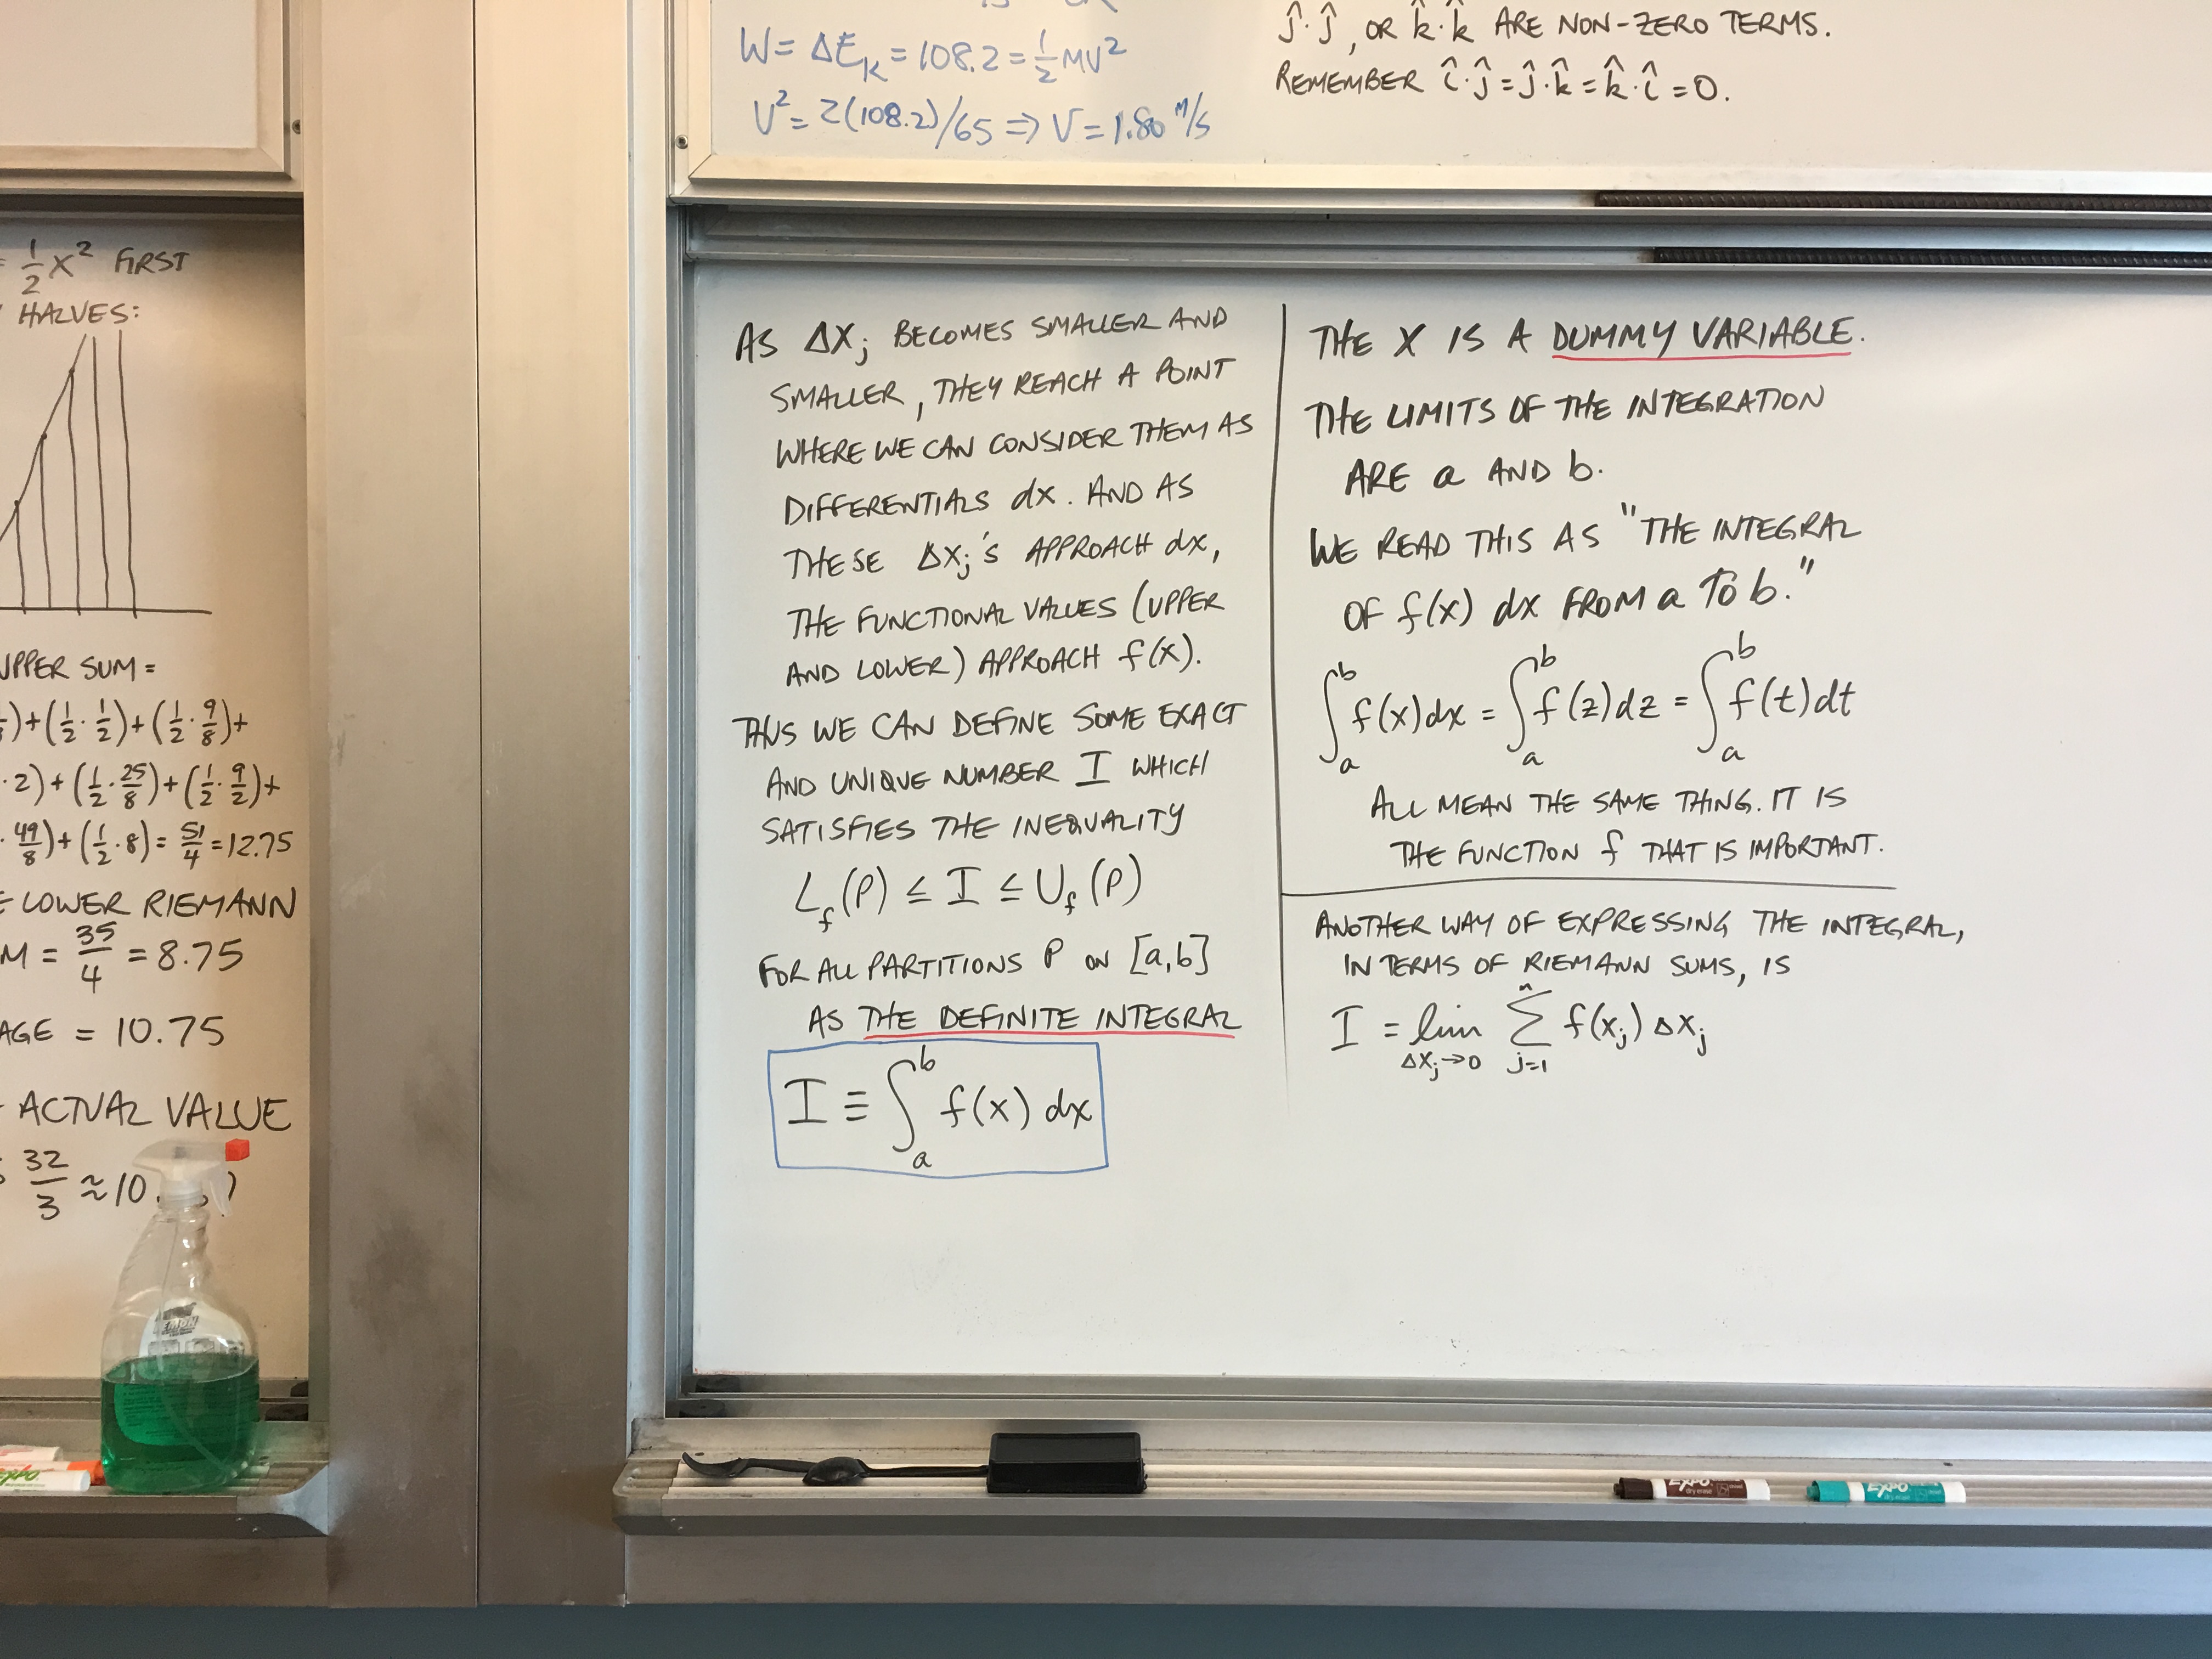 W = ΔE_K = 108.2 = 1/2 MV²
V² = 2(108.2)/65 ⇒ V = 1.80 M/S
ĵ·ĵ, OR k̂·k̂ ARE NON-ZERO TERMS.
REMEMBER î·ĵ = ĵ·k̂ = k̂·î = 0.
= 1/2 X² FIRST
HALVES:
UPPER SUM =
)+(1/2 · 1/2)+(1/2 · 9/8)+
· 2)+(1/2 · 25/8)+(1/2 · 9/2)+
· 49/8)+(1/2 · 8) = 51/4 = 12.75
LOWER RIEMANN
M = 35/4 = 8.75
AGE = 10.75
ACTUAL VALUE
32/3 ≈ 10.
AS ΔX_j BECOMES SMALLER AND
SMALLER, THEY REACH A POINT
WHERE WE CAN CONSIDER THEM AS
DIFFERENTIALS dx. AND AS
THESE ΔX_j'S APPROACH dx,
THE FUNCTIONAL VALUES (UPPER
AND LOWER) APPROACH f(x).
THUS WE CAN DEFINE SOME EXACT
AND UNIQUE NUMBER I WHICH
SATISFIES THE INEQUALITY
L_f(P) ≤ I ≤ U_f(P)
FOR ALL PARTITIONS P ON [a,b]
AS THE DEFINITE INTEGRAL
I ≡ ∫_a^b f(x) dx
THE X IS A DUMMY VARIABLE.
THE LIMITS OF THE INTEGRATION
ARE a AND b.
WE READ THIS AS "THE INTEGRAL
OF f(x) dx FROM a TO b."
∫_a^b f(x)dx = ∫_a^b f(z)dz = ∫_a^b f(t)dt
ALL MEAN THE SAME THING. IT IS
THE FUNCTION f THAT IS IMPORTANT.
ANOTHER WAY OF EXPRESSING THE INTEGRAL,
IN TERMS OF RIEMANN SUMS, IS
I = lim_{ΔX_j→0} Σ_{j=1}^n f(x_j) ΔX_j
EXPO
EXPO
dry erase
EXPO
dry erase